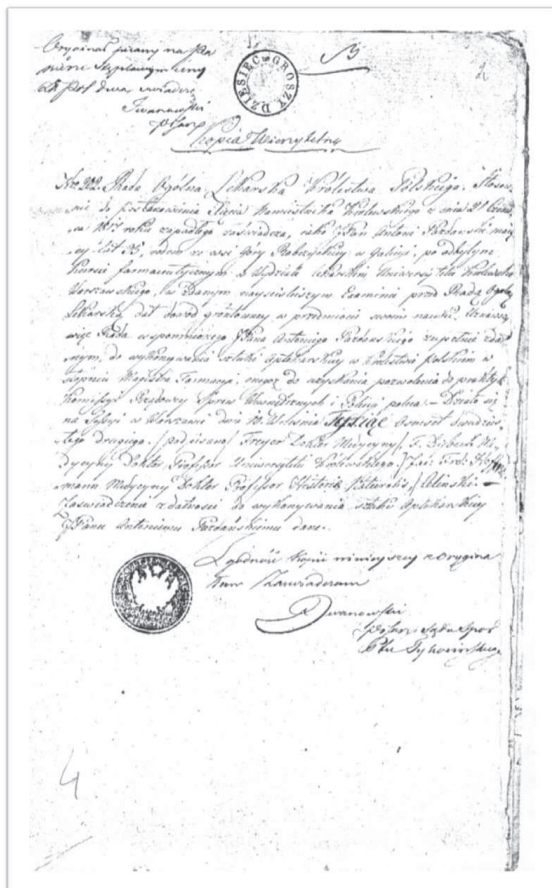 Oryginał pisany na Pa
pierze Stęplowym ceny
Iwanowski
Pisarz
DZIESIEC GROSZY
B
2
Kopia Wierzytelna
Rada Ogólna Lekarska Królestwa Polskiego. Stosow
nie do postanowienia Xięcia Namiestnika Królewskiego z dnia 21
1817 roku zapadłego zaświadcza, iako JPan Antoni Pazdański maią
cy lat 25, rodem ze wsi Góry Ropczyckiey w Galicyi, po odbytym
kursie farmaceutycznym w Wydziale Lekarskim Uniwersytetu Królewsko
Warszawskiego, na zdanym nayściśleyszym Examinie przed Radą Ogólną
Lekarską dał dowód gruntowney w przedmiocie swoim nauki. Uznaiąc
więc Rada wspomnionego JPana Antoniego Pazdańskiego zupełnie zdat
nym, do wykonywania sztuki aptekarskiey w Królestwie Polskim w
stopniu Magistra Farmacyi, do uzyskania pozwolenia do praktyki
Kommissyi Rządowey Spraw Wewnętrznych i Policyi poleca. Działo się
na Sessyi w Warszawie dnia 10 Września Tysiąc Ośmset dwudzies
tego drugiego. /podpisano/ Doktor Medycyny / F. Dybek Me
dycyny Doktor, Professor Uniwersytetu Królewskiego / Hoff
mann Medycyny Doktor Professor Celiński
Zaświadczenie zdatności do wykonywania sztuki Aptekarskiey
JPanu Antoniemu Pazdańskiemu dane.
Zgodność Kopii ninieyszey z Orygina
łem Zaświadczam
Iwanowski
Pisarz Sądu
Ptu Tykocińskiego
4